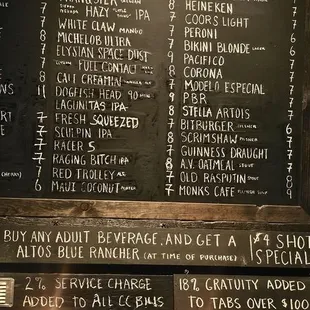 HAZY IPA
7 WHITE CLAW MANGO
8 MICHELOB ULTRA
7 ELYSIAN SPACE DUST
7 FULL CONTACT
8 CALI CREAMIN' ALE
11 DOGFISH HEAD 90
8 LAGUNITAS IPA
7 FRESH SQUEEZED
7 SCULPIN IPA
7 RACER 5
7 RAGING BITCH IPA
7 RED TROLLEY ALE
6 MAUI COCONUT PORTER
8 HEINEKEN 7
7 COORS LIGHT 7
7 PERONI 7
7 BIKINI BLONDE LAGER 6
9 PACIFICO 7
8 CORONA 7
8 MODELO ESPECIAL 7
9 PBR 7
8 STELLA ARTOIS 7
7 BITBURGER 6
8 SCRIMSHAW 7
8 GUINNESS DRAUGHT 7
8 A.V. OATMEAL STOUT 7
8 OLD RASPUTIN 8
7 MONKS CAFE 9
BUY ANY ADULT BEVERAGE, AND GET A
ALTOS BLUE RANCHER (AT TIME OF PURCHASE)
$4 SHOT
SPECIAL
2% SERVICE CHARGE
ADDED TO ALL CC BILLS
18% GRATUITY ADDED
TO TABS OVER $100